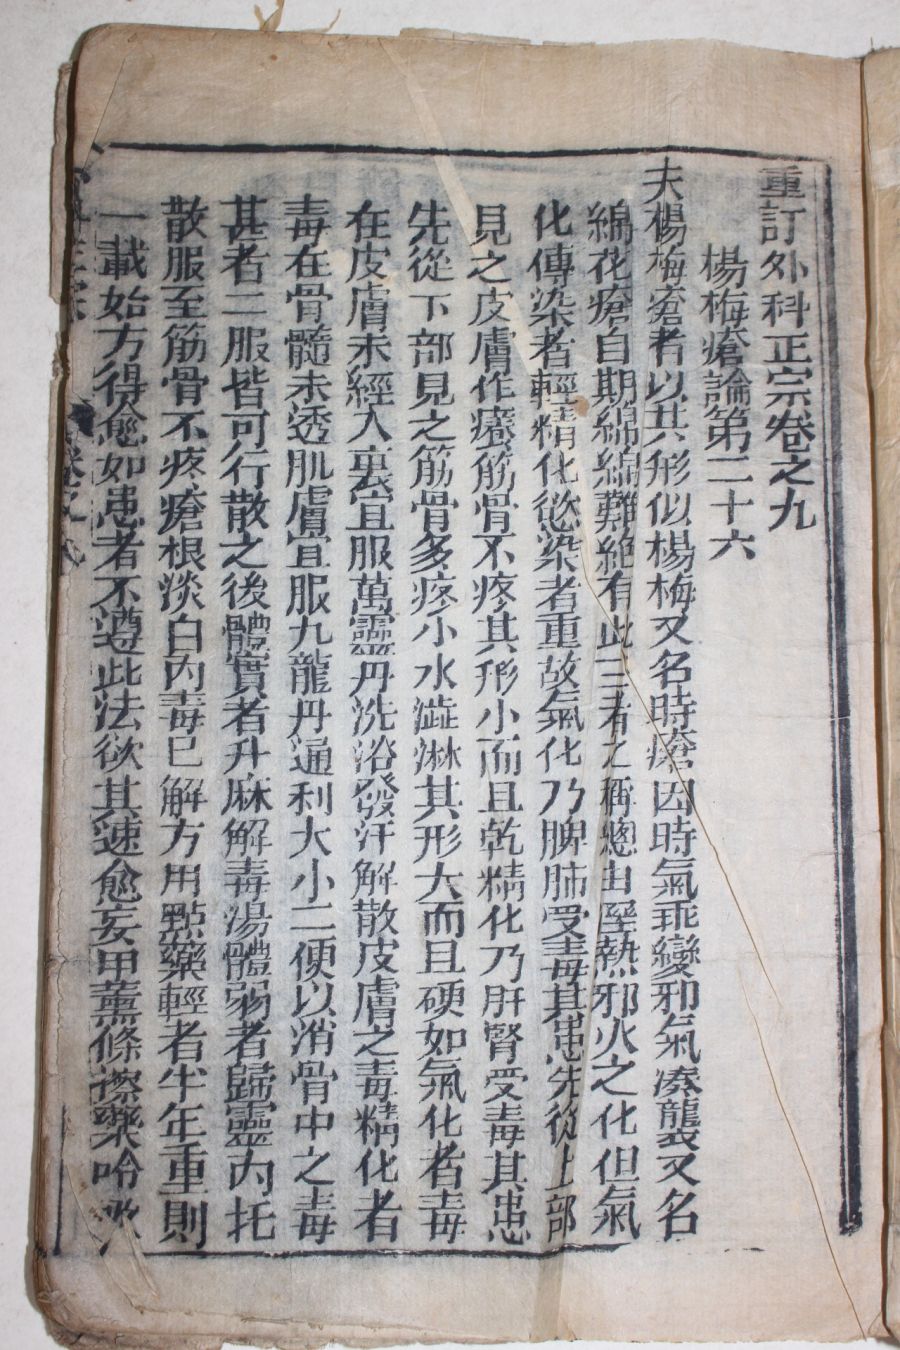 重訂外科正宗卷之九
楊梅瘡論第二十六
夫楊梅瘡者以其形似楊梅又名時瘡因時氣乖變邪氣湊襲又名
綿花瘡自期綿綿難絶有此三者之稱總由溼熱邪火之化但氣
化傳染者輕精化慾染者重故氣化乃脾肺受毒其患先從上部
見之皮膚作癢筋骨不疼其形小而且乾精化乃肝腎受毒其患
先從下部見之筋骨多疼小水澁淋其形大而且硬如氣化者毒
在皮膚未經入裏宜服萬靈丹洗浴發汗解散皮膚之毒精化者
毒在骨髓未透肌膚宜服九龍丹通利大小二便以消骨中之毒
甚者二服皆可行散之後體實者升麻解毒湯體弱者歸靈內托
散服至筋骨不疼瘡根淡白內毒已解方用點藥輕者半年重則
一載始方得愈如患者不遵此法欲其速愈妄用薰條擦藥哈